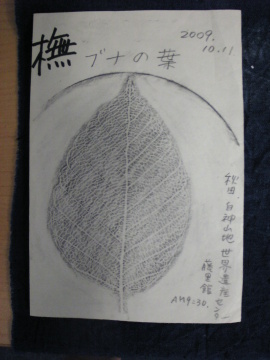 橅
ブナの葉
2009.
10.11
秋田 白神山地世界遺産センター
藤里館
AM9:30.